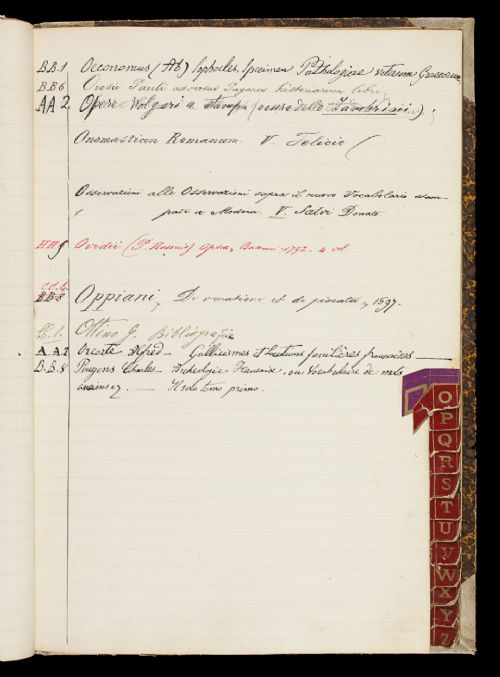 B.B.1 Oeconomus (Ab) Sophocles, Specimen Pathologiae vitarum Graecorum
B.B.6 Orosii Pauli adversus Paganos historiarum libri,
AA 2 Opere Volgari a Stampa (cura dello Zambrini);
Onomasticon Romanum V. Felicio (
Osservazioni alle Osservazioni sopra il nuovo Vocabolario stam-
pato a Modena. V. Salvi Donato
HH 5 Ovidii (P. Nasonis) Opera, Bassani 1792. 4 vol
CC.4
B.B.8 Oppiani, De venatione et de piscatu, 1597.
Ottino G. Bibliografia
A.A.2 Alfred — Gallicismes et locutions familières françaises —
B.B.8 Pougens Charles — Archeologie Francaise, ou Vocabulaire de mots
anciens — Il solo tomo primo.
O
P
Q
R
S
T
U
V
W
X
Y
Z